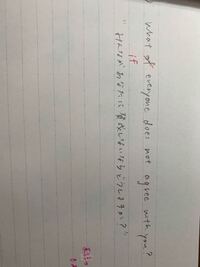 What of everyone does not agree with you?
if
"みんながあなたに賛成しないならどうしますか?"